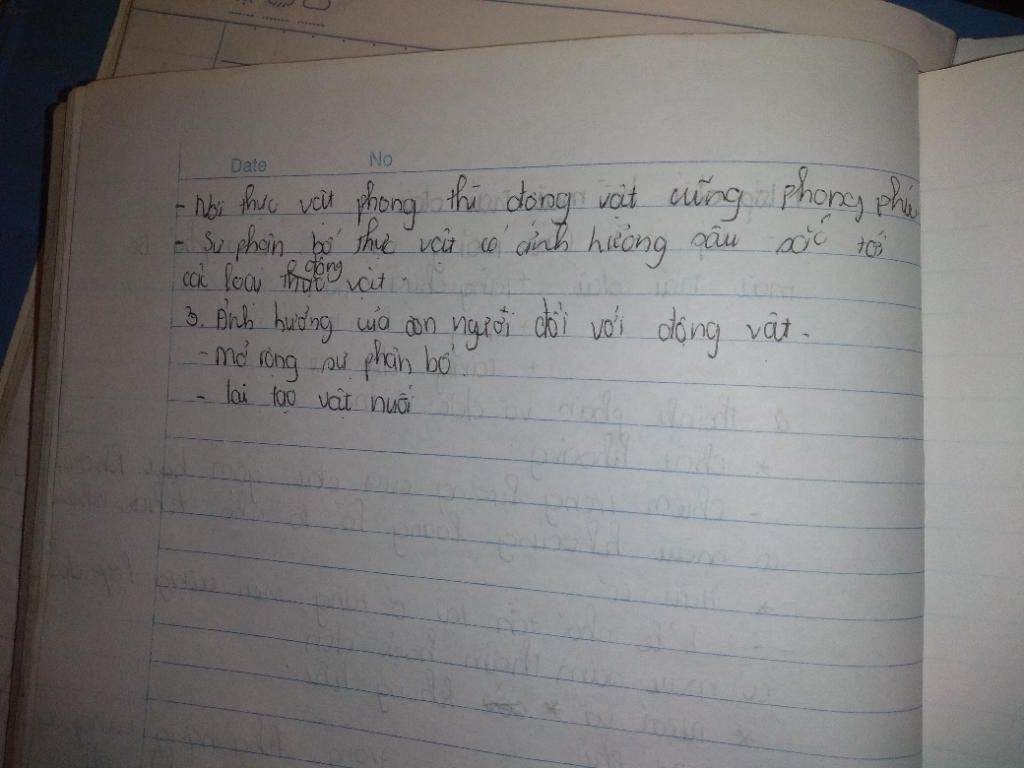 Date No
- Nơi thực vật phong thú động vật cũng phong phú
- Sự phân bố thực vật có ảnh hưởng sâu sắc tới
các loài động vật.
3. Ảnh hưởng của con người đối với động vật.
- mở rộng sự phân bố
- lai tạo vật nuôi